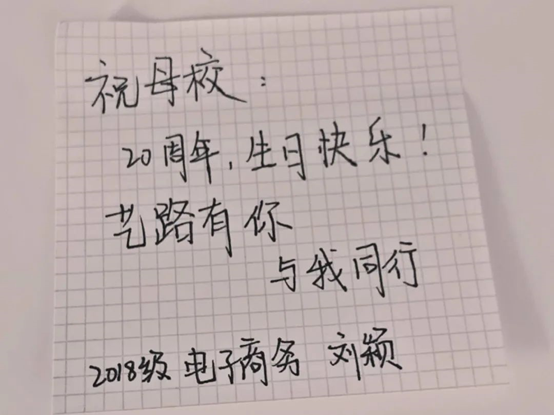 祝母校：
20周年，生日快乐！
艺路有你
与我同行
2018级 电子商务 刘颖